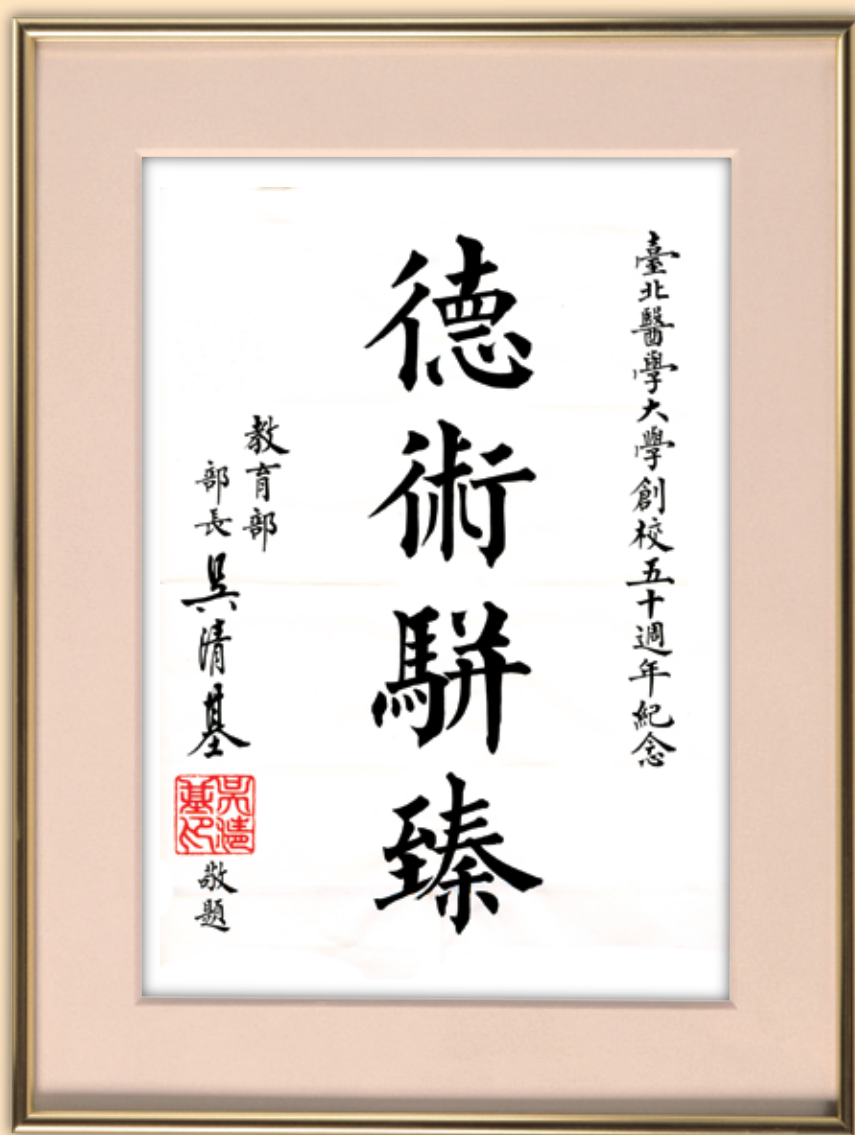 臺北醫學大學創校五十週年紀念
德術駢臻
教育部
部長吳清基
吳清基印
敬題